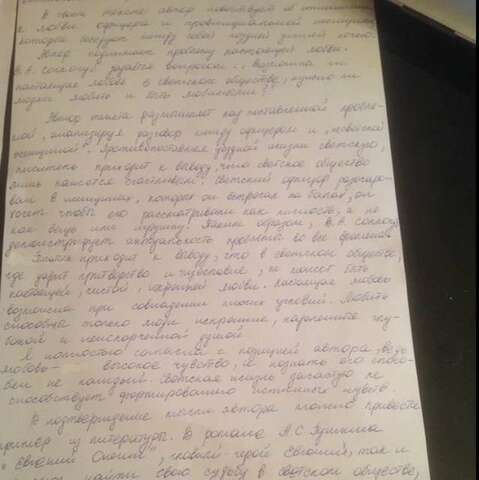 В своем тексте автор повествует об отношении
к любви офицера и провинциальной женщины,
которые беседуют между собой поздней зимней ночью.
Автор поднимает проблему настоящей любви.
В.А. Соллогуб задается вопросом: "Возможна ли
настоящая любовь в светском обществе, нужно ли
людям любить и быть любимыми?
Автор текста размышляет над поставленной пробле-
мой, анализируя разговор между офицером и "
женщиной". Противопоставляя уездной жизни светскую,
писатель приходит к выводу, что светское общество
лишь кажется счастливым. Светский офицер разочаро-
ван в женщинах, которых он встречал на балах, он
хочет чтобы его рассматривали как личность, а не
как вещь или игрушку. Таким образом, В.А. Соллогуб
демонстрирует актуальность проблемы во все времена.
Автор приходит к выводу, что в светском обществе,
где царит притворство и тщеславие, не может быть
настоящей, чистой, искренней любви. Настоящая любовь
возможна при совпадении многих условий. Любить
способны только люди искренние, наделенные глу-
бокой и неиспорченной душой.
Я полностью согласна с позицией автора, ведь
любовь – высокое чувство, и познать его спосо-
бен не каждый. Светская жизнь зачастую не
способствует формированию истинных чувств.
В подтверждение мысли автора можно привести
пример из литературы. В романе А.С. Пушкина
"Евгений Онегин", главный герой Евгений, так и
найти свою судьбу в светском обществе,